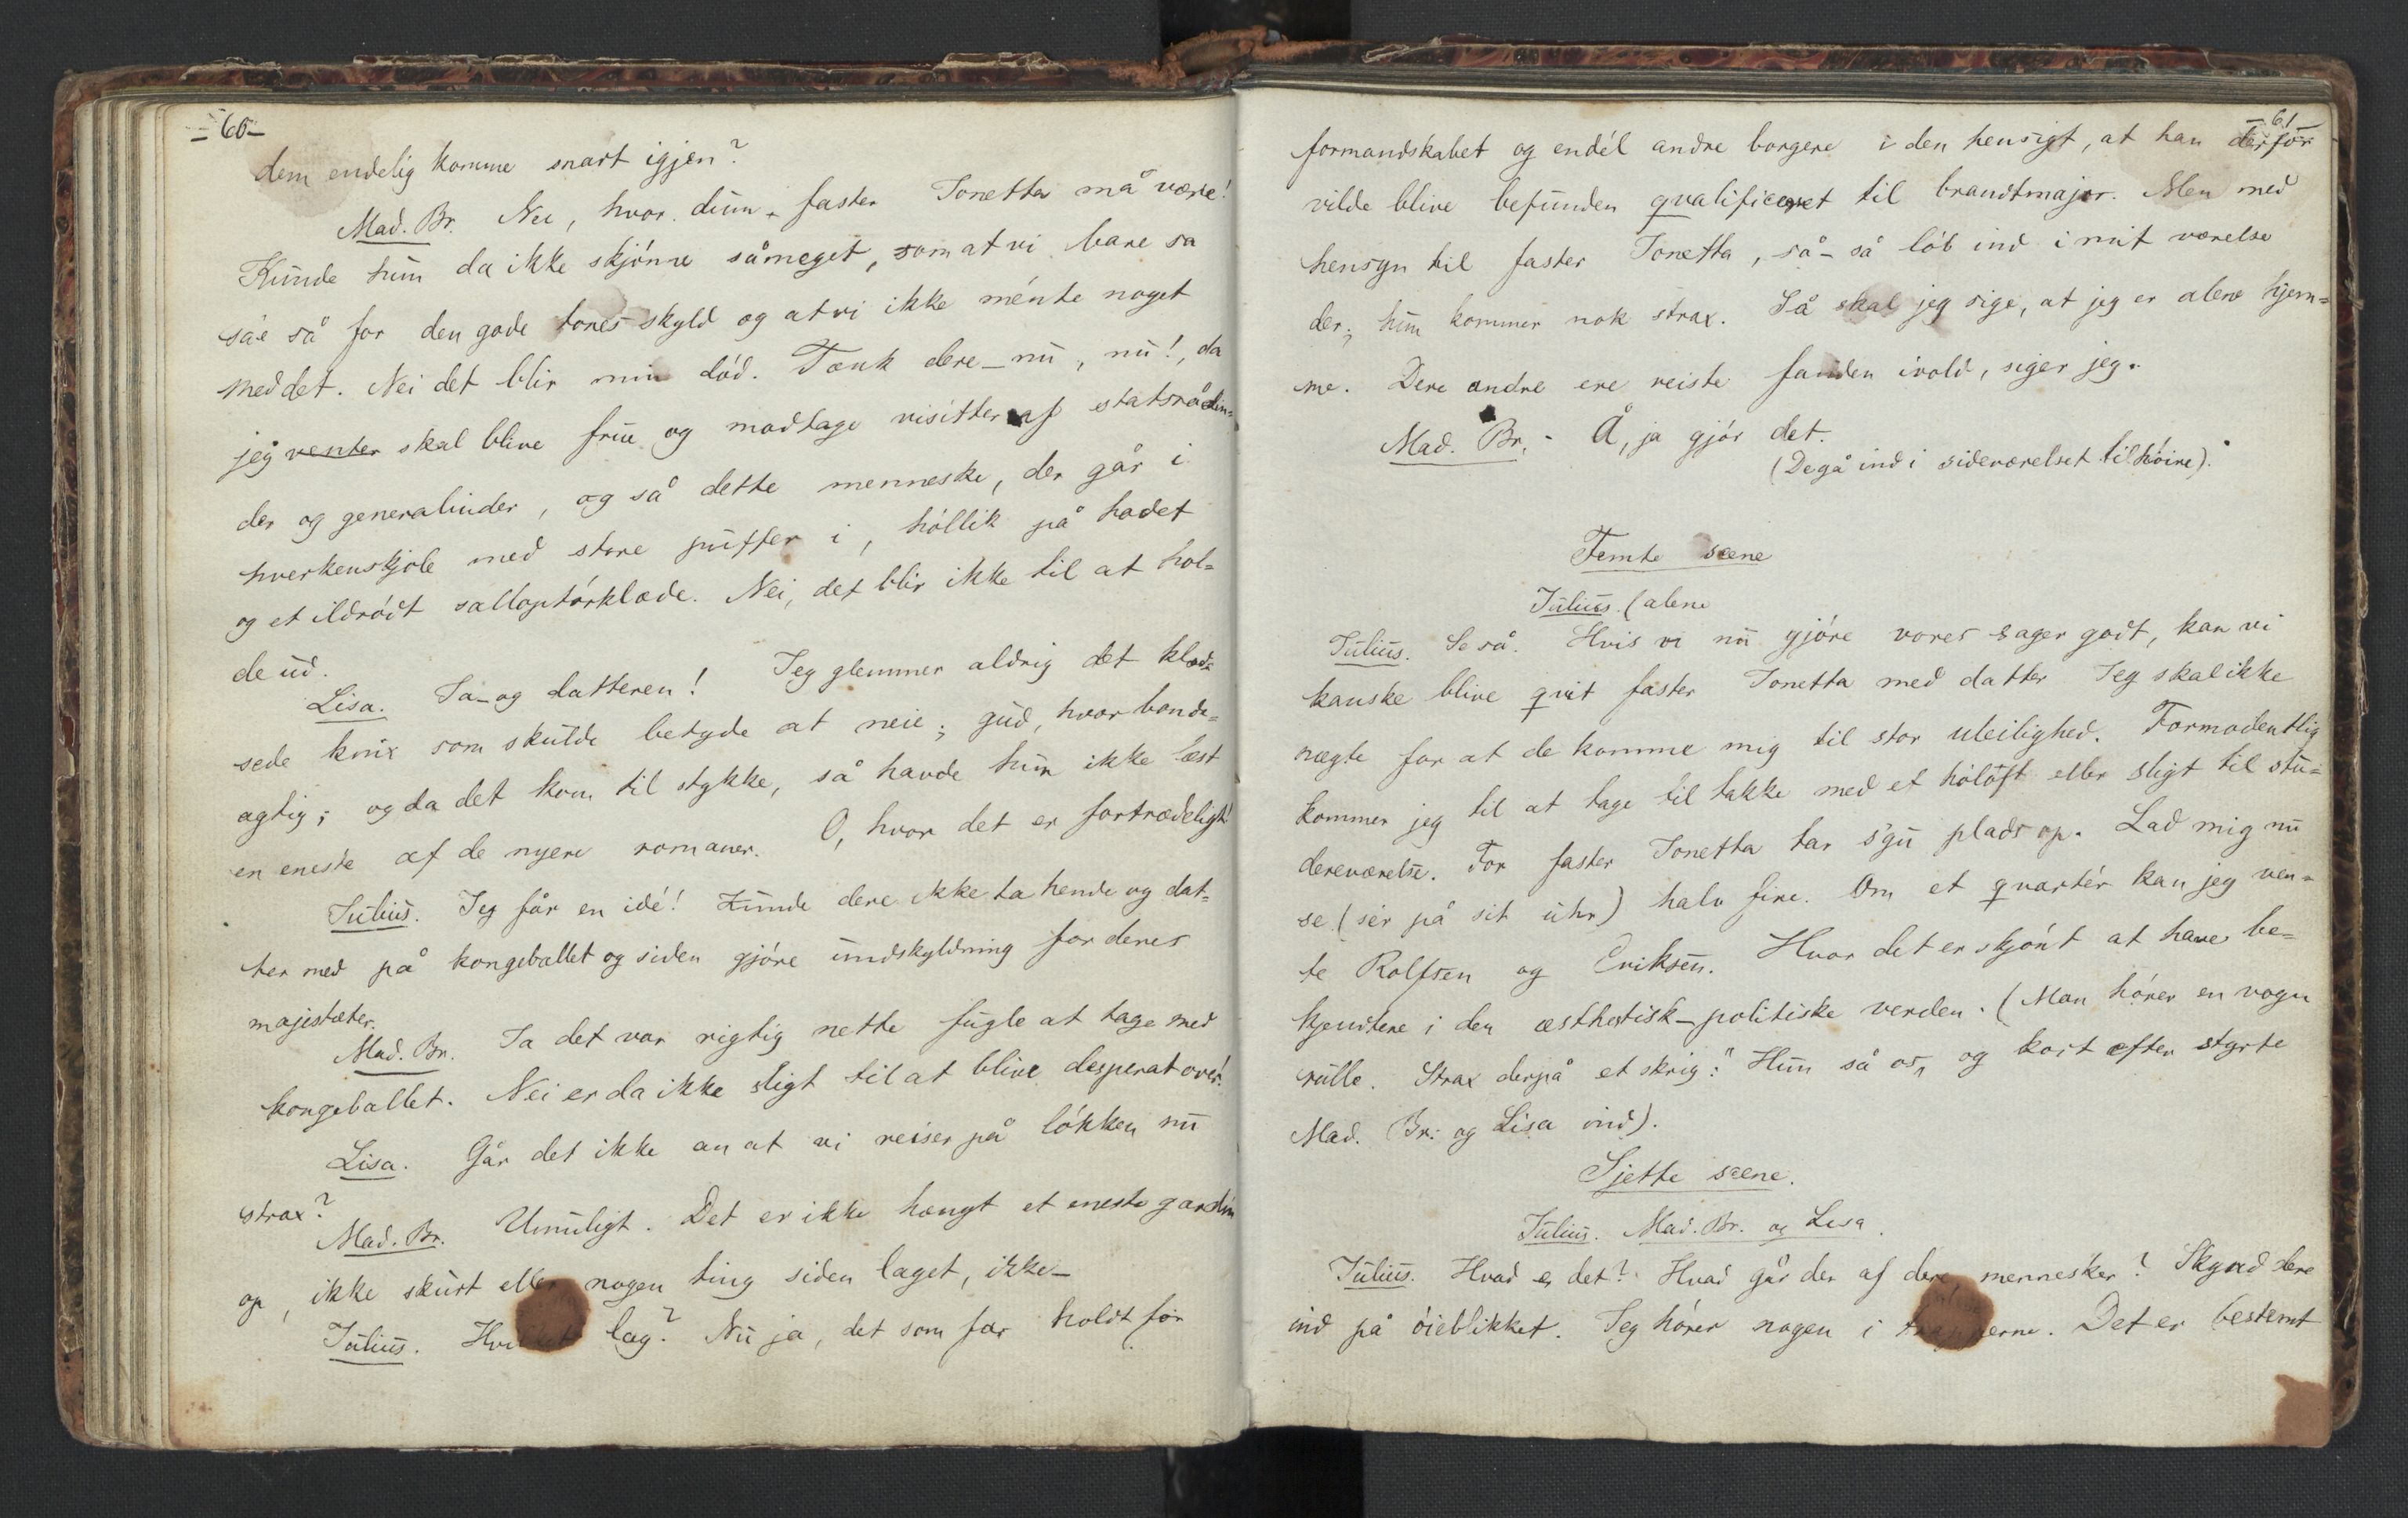 - 60 -
dem endelig komme snart igjen?
Mad. Br. Nei, hvor dum faster Tonetta må være!
Kunde hun da ikke skjønne såmeget, som at vi bare sa
sáe så for den gode tones skyld og at vi ikke ménte noget
med det. Nei det blir min død. Tænk dere _ nu, nu!, da
jeg venter skal blive frue og modtage visitter af statsrådin=
der og generalinder, og så dette menneske, der går i
hverkenskjole med store puffer i, hóllik på hodet
og et ildrødt salloptørklæde. Nei, det blir ikke til at hol=
de ud.
Lisa. Ja _ og datteren! Jeg glemmer aldrig det klod=
sede knix som skulde betyde at neie; gud, hvor bonde=
agtig; og da det kom til stykke, så havde hun ikke læst
en eneste af de nyere romaner. O, hvor det er fortrædeligt!
Julius. Jeg får en idé! Kunde dere ikke ta hende og dat=
ter med på kongeballet og siden gjøre undskyldning for deres
majestæter.
Mad. Br. Ja det var rigtig nette fugle at tage med
kongeballet. Nei er da ikke sligt til at blive desperat over!
Lisa. Går det ikke an at vi reiser på løkken nu
strax?
Mad. Br. Umuligt. Det er ikke hængt et eneste gardin
op, ikke skurt eller nogen ting siden laget, ikke _
Julius. Hvilket lag? Nu ja, det som far holdt for
- 61
formandskabet og endél andre borgere i den hensigt, at han derfor
vilde blive befunden qvalificeret til brandtmajor. Men med
hensyn til faster Tonetta, så _ så løb ind i mit værelse
der; hun kommer nok strax. Så skal jeg sige, at jeg er alene hjem=
me. Dere andre ere reiste fanden ivold, siger jeg.
Mad. Br. Å, ja gjør det.
(De gå ind i sideværelset til høire).
Femte scene
Julius. (alene
Julius. Se så. Hvis vi nu gjøre vores sager godt, kan vi
kanske blive qvit faster Tonetta med datter Jeg skal ikke
nægte for at de komme mig til stor uleilighed. Formodentlig
kommer jeg til at tage til takke med et høløft eller sligt til stu=
dereværelse. For faster Tonetta tar s'gu plads op. Lad mig nu
se (sér på sit uhr) halv fire. Om et qvartér kan jeg ven=
te Rolfsen og Eriksen. Hvor det er skjønt at have be=
kjendtere i den æsthetisk-politiske verden. (Man hører en vogn
rulle. Strax derpå et skrig: "Hun så os" og kort efter styrte
Mad. Br. og Lisa ind).
Sjette scene.
Julius. Mad. Br. og Lisa.
Julius. Hvad er det? Hvad går der af dere, mennesker? Skynd dere
ind på øieblikket. Jeg hører nogen i trapperne. Det er bestemt